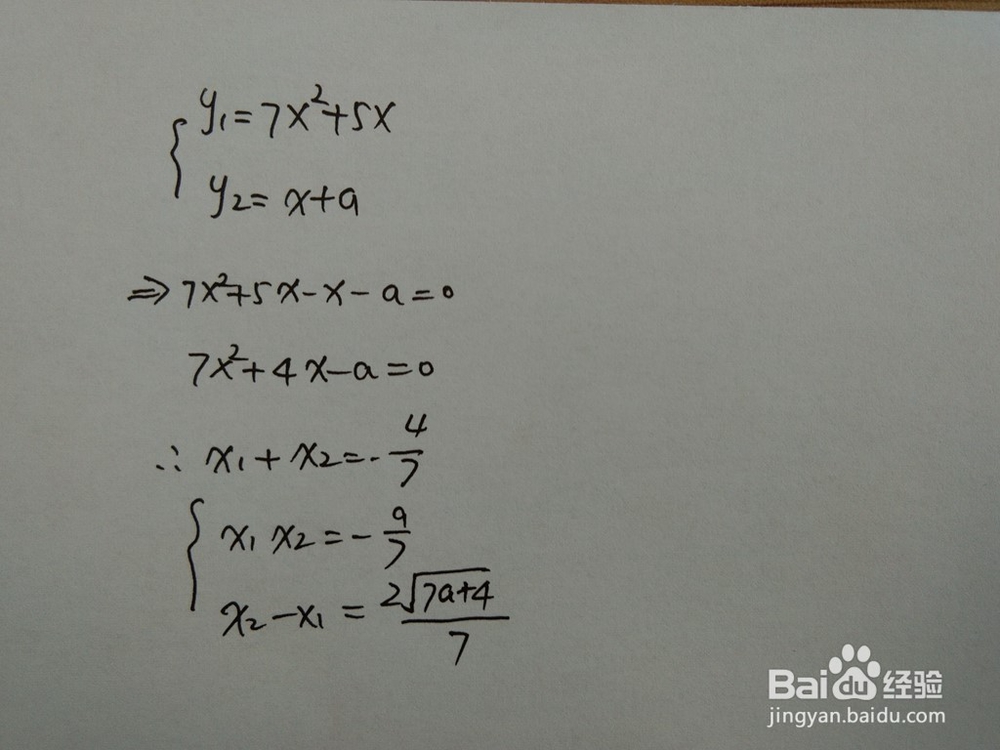 y₁=7x²+5x
y₂=x+a
⇒7x²+5x-x-a=0
7x²+4x-a=0
∴ x₁+x₂=-4/7
x₁x₂=-a/7
x₂-x₁=2√(7a+4)/7
Baidu经验
jingyan.baidu.com